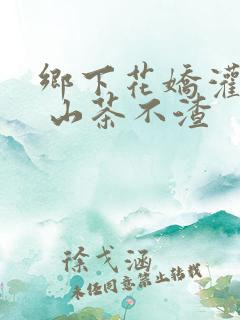 鄉下花嬌灌
山茶不渣
徐戈涵
未经同意禁止转载